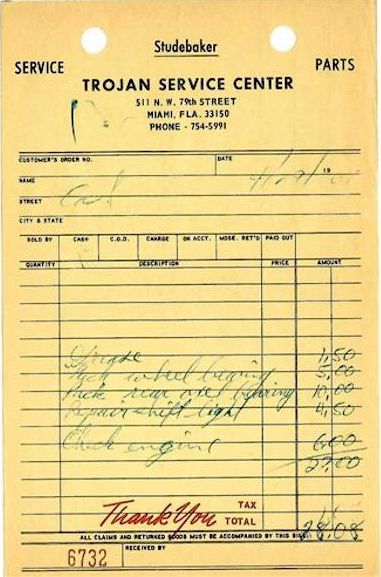 Studebaker
SERVICE PARTS
TROJAN SERVICE CENTER
511 N. W. 79th STREET
MIAMI, FLA. 33150
PHONE - 754-5991
CUSTOMER'S ORDER NO. DATE
NAME 19
STREET
CITY & STATE
SOLD BY CASH C.O.D. CHARGE ON ACCT. MDSE. RET'D PAID OUT
QUANTITY DESCRIPTION PRICE AMOUNT
1,50
Pack wheel bearing 5,00
rear bearing 10,00
Repair shift light 4,50
Check engine 6,00
27,00
Thank You TAX
TOTAL 28,08
ALL CLAIMS AND RETURNED GOODS MUST BE ACCOMPANIED BY THIS BILL.
6732 RECEIVED BY